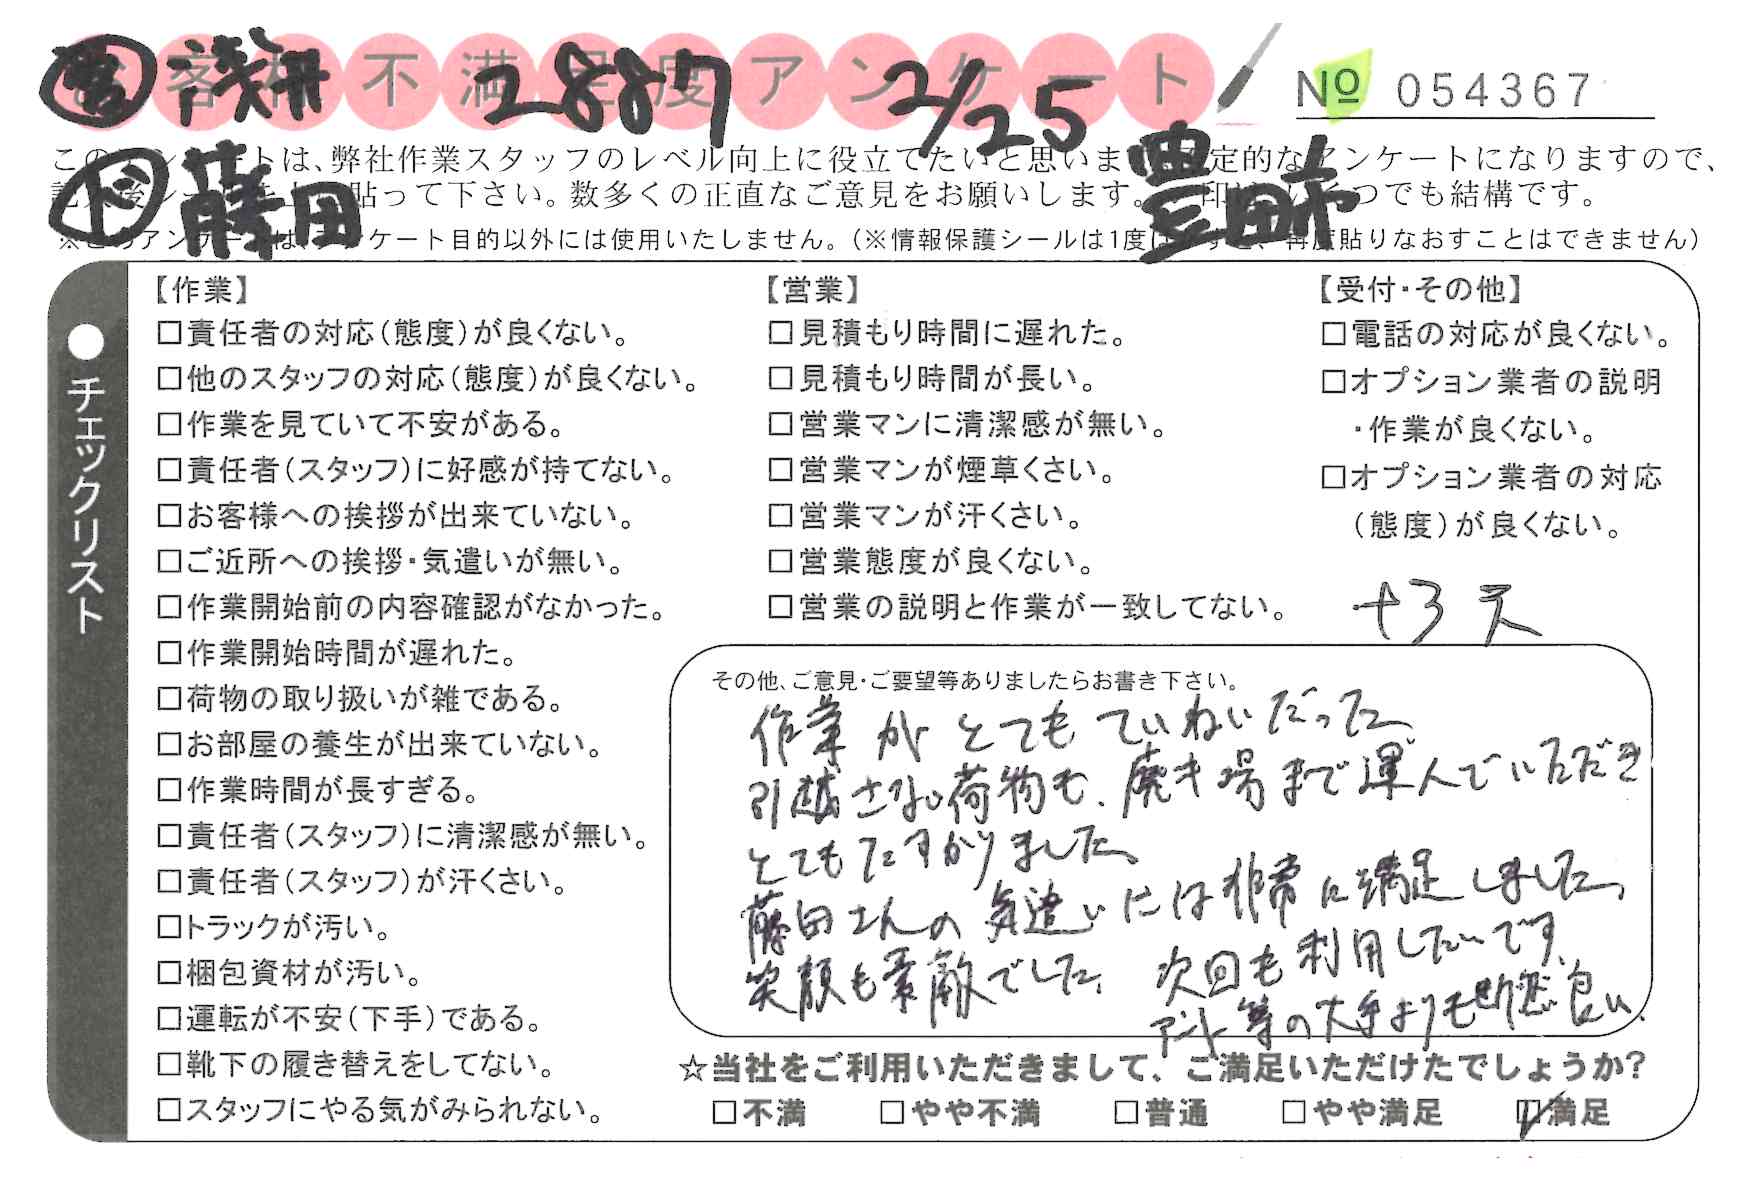 お客様不満足度アンケート
営 浅井 2887 2/25
№ 054367
ド 藤田 豊田市
このアンケートは、弊社作業スタッフのレベル向上に役立てたいと思いま 定的なアンケートになりますので、
記 後シ 上 貼って下さい。数多くの正直なご意見をお願いします。 印は、いくつでも結構です。
※このアンケートは、アンケート目的以外には使用いたしません。(※情報保護シールは1度はがすと、再度貼りなおすことはできません)
●チェックリスト
【作業】
□責任者の対応(態度)が良くない。
□他のスタッフの対応(態度)が良くない。
□作業を見ていて不安がある。
□責任者(スタッフ)に好感が持てない。
□お客様への挨拶が出来ていない。
□ご近所への挨拶・気遣いが無い。
□作業開始前の内容確認がなかった。
□作業開始時間が遅れた。
□荷物の取り扱いが雑である。
□お部屋の養生が出来ていない。
□作業時間が長すぎる。
□責任者(スタッフ)に清潔感が無い。
□責任者(スタッフ)が汗くさい。
□トラックが汚い。
□梱包資材が汚い。
□運転が不安(下手)である。
□靴下の履き替えをしてない。
□スタッフにやる気がみられない。
【営業】
□見積もり時間に遅れた。
□見積もり時間が長い。
□営業マンに清潔感が無い。
□営業マンが煙草くさい。
□営業マンが汗くさい。
□営業態度が良くない。
□営業の説明と作業が一致してない。
【受付・その他】
□電話の対応が良くない。
□オプション業者の説明
・作業が良くない。
□オプション業者の対応
(態度)が良くない。
+3
その他、ご意見・ご要望等ありましたらお書き下さい。
作業がとてもていねいだった。
引越さない荷物も、廃キ場まで運んでいただき
とてもたすかりました。
藤田さんの気遣いには非常に満足しました。
笑顔も素敵でした。次回も利用したいです。
アート等の大手よりも断然良い。
☆当社をご利用いただきまして、ご満足いただけたでしょうか?
□不満 □やや不満 □普通 □やや満足 ☑満足